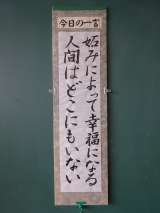 今日の一言
妬みによって幸福になる
人間はどこにもいない